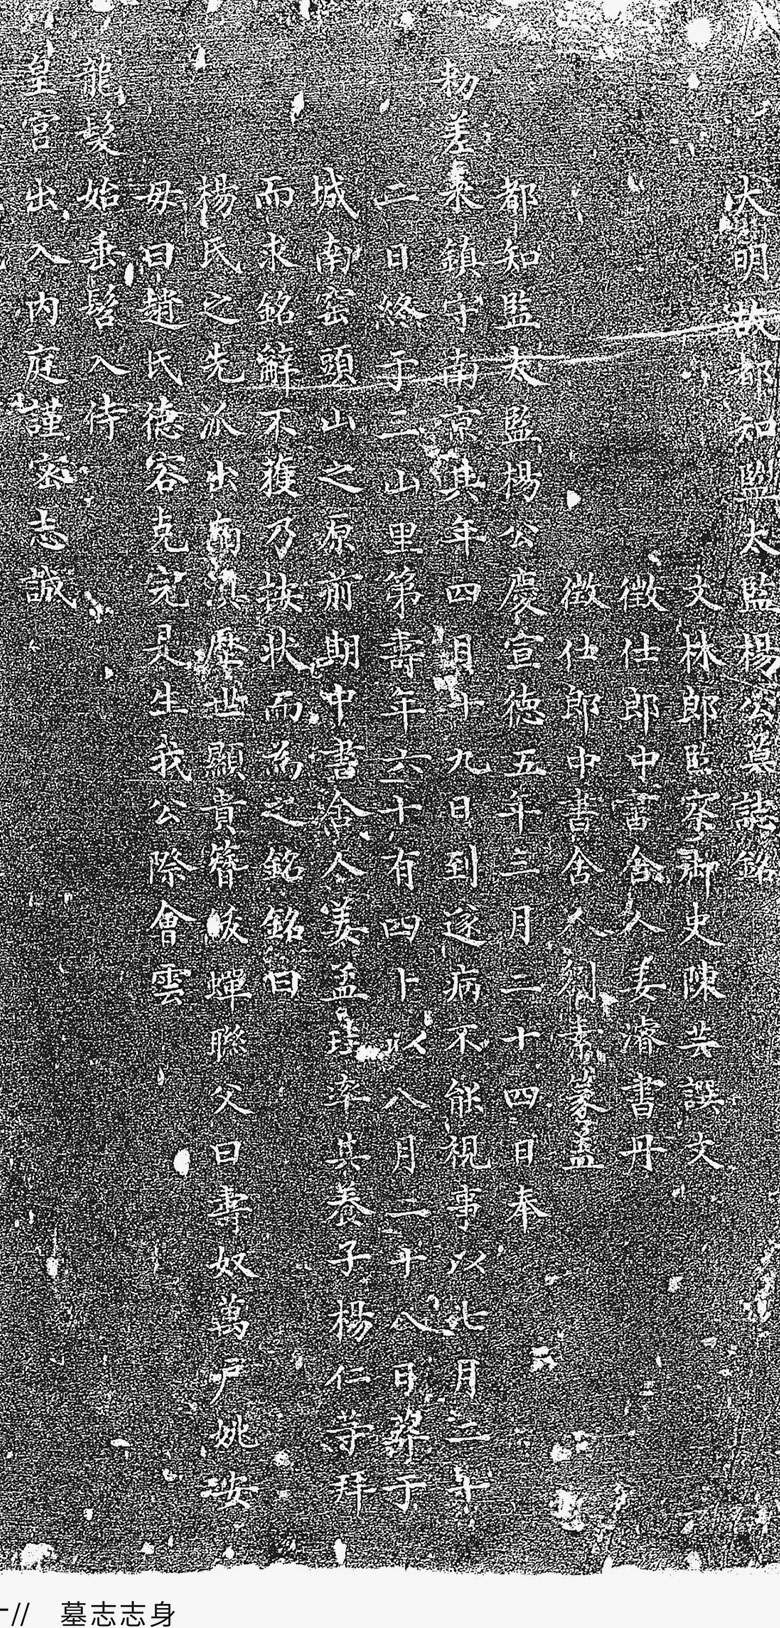 大明故都知監太監楊公墓誌銘
文林郎監察御史陳英譔文
徵仕郎中書舍人姜濬書丹
徵仕郎中書舍人劉素篆蓋
都知監太監楊公慶宣德五年三月二十四日奉
勑差來鎮守南京其年四月十九日到遂病不能視事以七月二十
二日終于二山里第壽年六十有四卜以八月二十八日葬于
城南窑頭山之原前期中書舍人姜孟珪率其養子楊仁等拜
而求銘辭不獲乃按狀而為之銘銘曰
楊氏之先派出南滇歷世顯貴簪紱蟬聯父曰壽奴萬戶姚安
母曰趙氏德容克完是生我公際會雲
龍髮始垂髫入侍
皇宮出入內庭謹密志誠
墓志志身